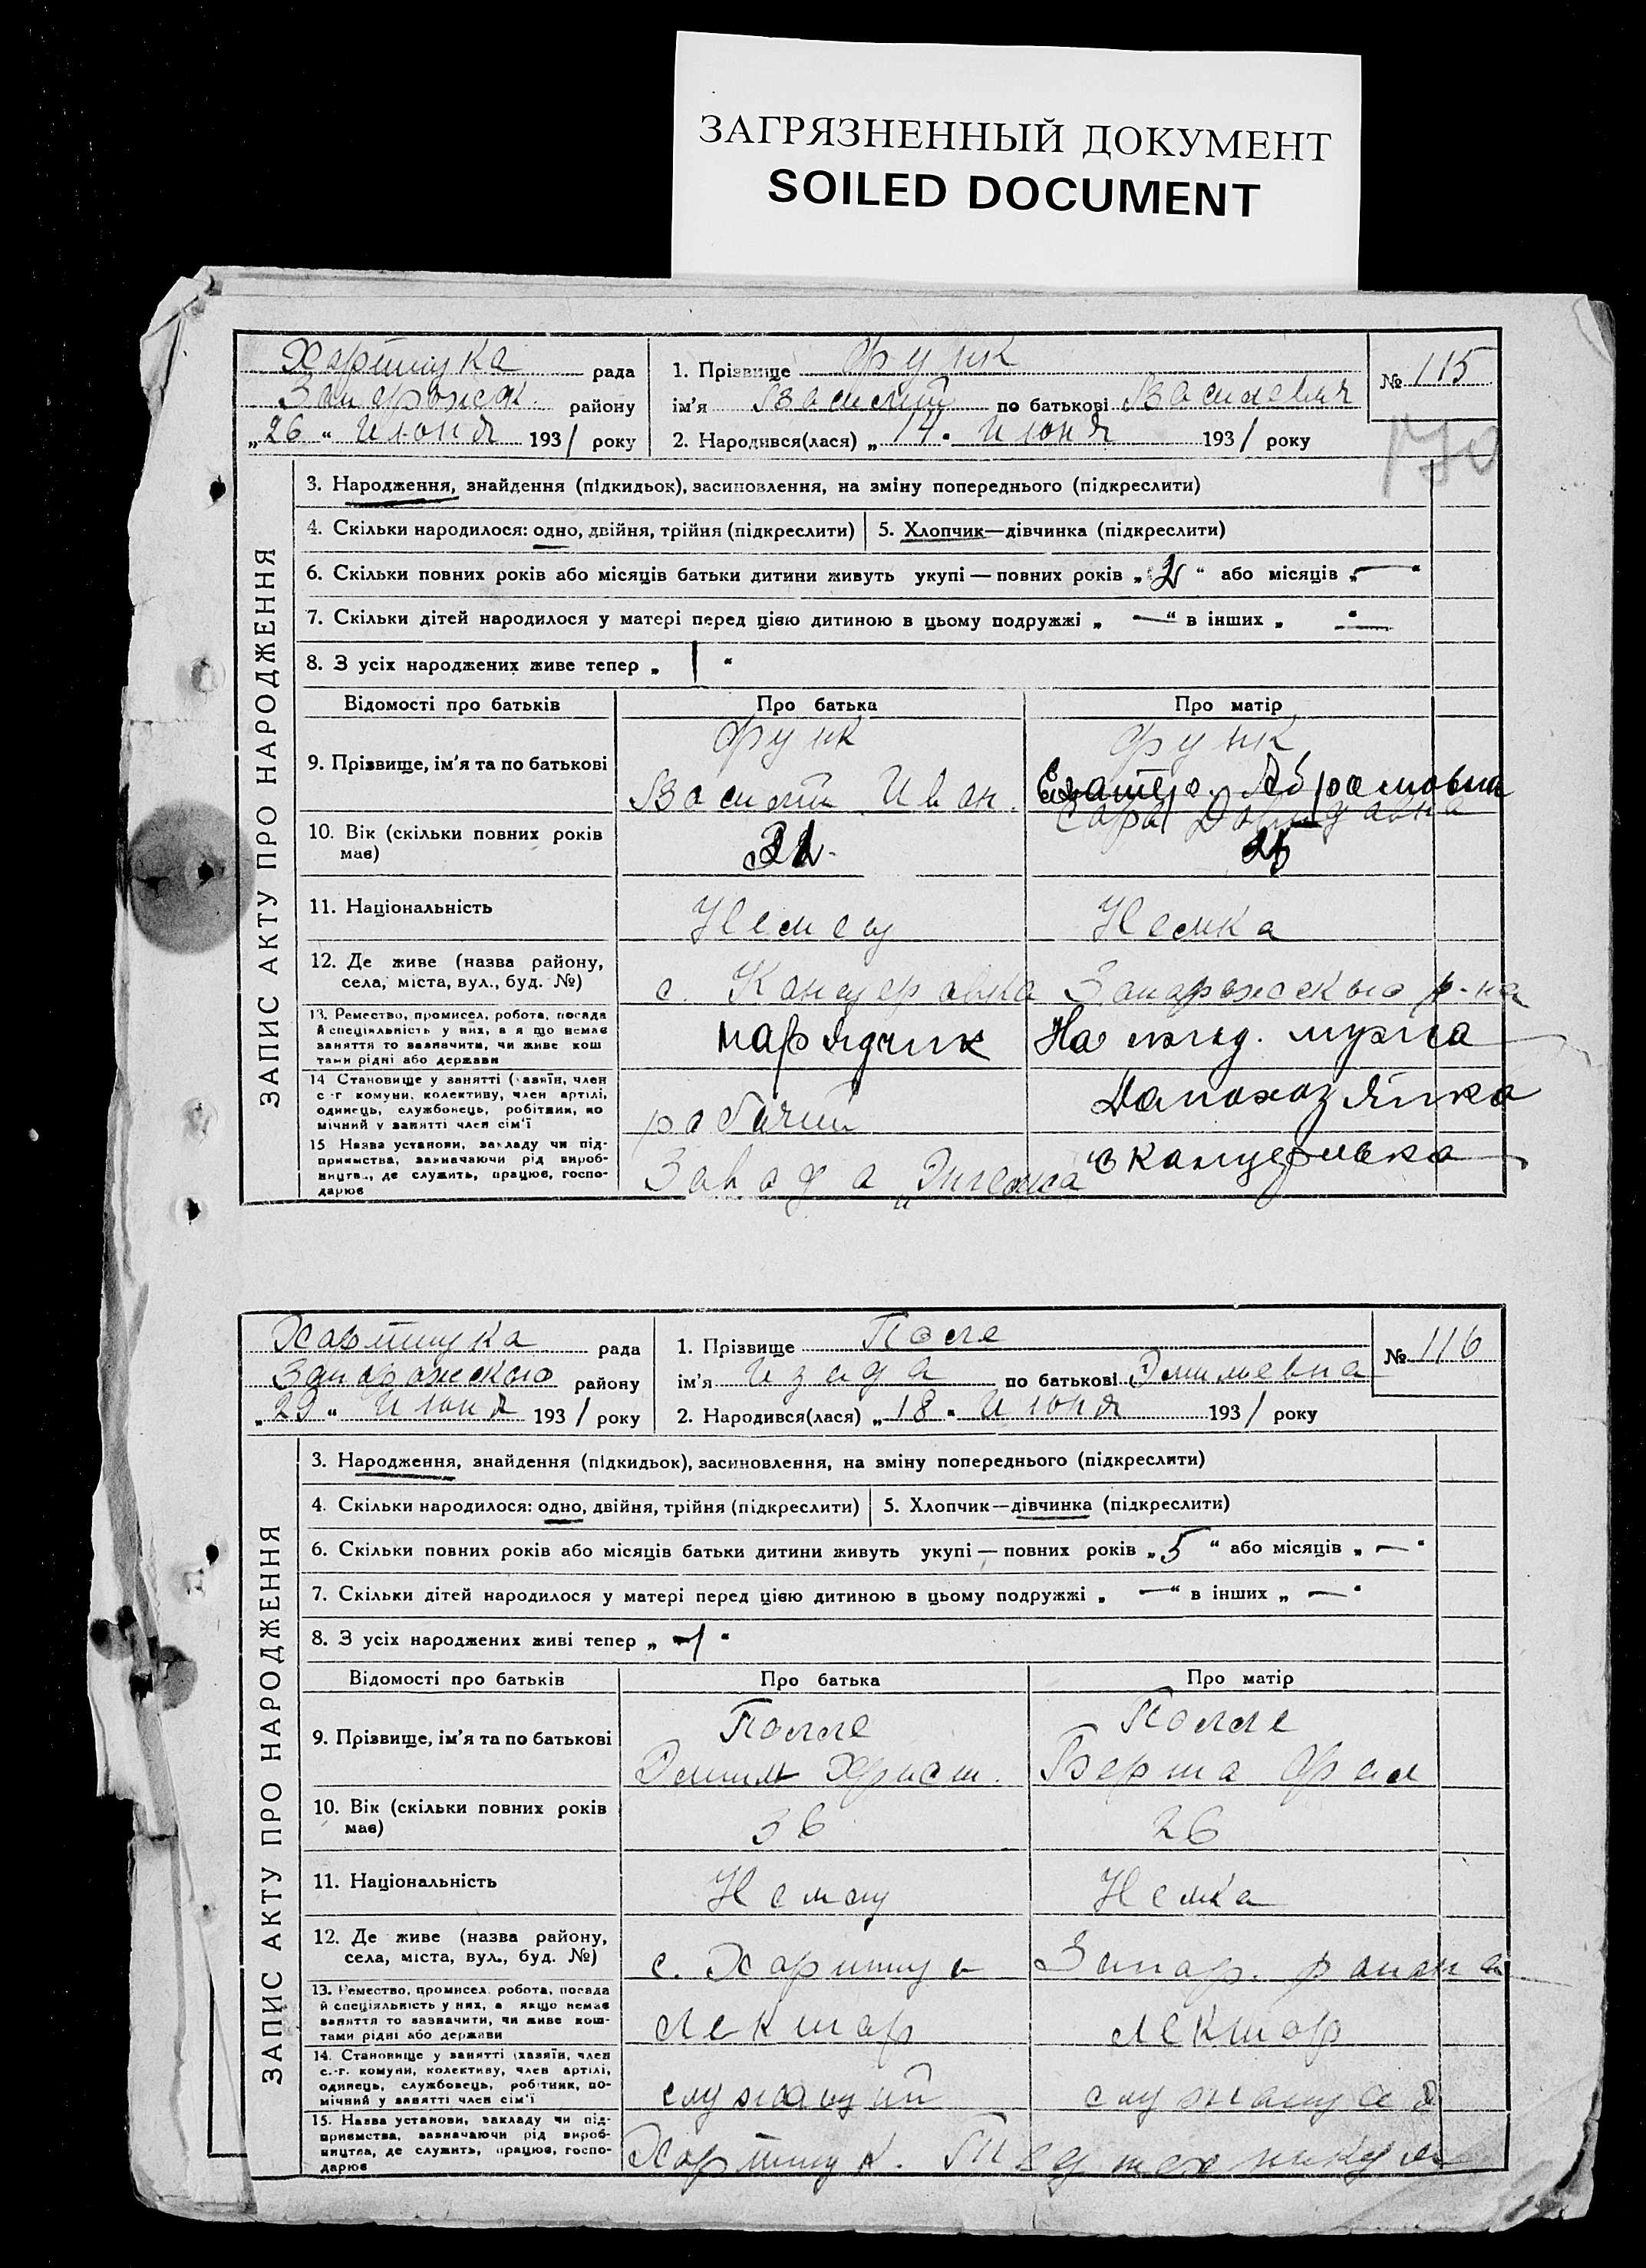 ЗАГРЯЗНЕННЫЙ ДОКУМЕНТ
SOILED DOCUMENT
рада
Запорожск. району
„26“ Июня 1931 року
1. Прізвище Функ
ім'я Василий по батькові Василевич
2. Народився(лася) „14“ Июня 1931 року
№ 115
170
ЗАПИС АКТУ ПРО НАРОДЖЕННЯ
3. Народження, знайдення (підкидьок), засиновлення, на зміну попереднього (підкреслити)
4. Скільки народилося: одно, двійня, трійня (підкреслити)
5. Хлопчик—дівчинка (підкреслити)
6. Скільки повних років або місяців батьки дитини живуть укупі — повних років „2“ або місяців „—“
7. Скільки дітей народилося у матері перед цією дитиною в цьому подружжі „—“ в інших „—“
8. З усіх народжених живе тепер „1“
Відомості про батьків
Про батька
Про матір
9. Прізвище, ім'я та по батькові
Функ
Василий Иван.
Функ
Екатер. Абрамовна
Сара Давидовна
10. Вік (скільки повних років має)
11. Національність
Немец
Немка
12. Де живе (назва району, села, міста, вул., буд. №)
с. Канцеровка Запорожского р-на
13. Ремество, промисел, робота, посада й спеціяльність у них, а якщо немає заняття то зазначити, чи живе коштами рідні або держави
нарядчик
На ижд. мужа
14 Становище у занятті (хазяїн, член с.-г. комуни, колективу, член артілі, одинець, службовець, робітник, помічний у занятті член сім'ї
рабочий
Домохозяйка
15 Назва установи, закладу чи підприємства, зазначаючи рід виробництва, де служить, працює, господарює
Завода „Энгельса
с Канцеровка
рада
Запорожского району
„29“ Июня 1931 року
1. Прізвище Поле
ім'я Изида по батькові Эмильевна
2. Народився(лася) „18“ Июня 1931 року
№ 116
ЗАПИС АКТУ ПРО НАРОДЖЕННЯ
3. Народження, знайдення (підкидьок), засиновлення, на зміну попереднього (підкреслити)
4. Скільки народилося: одно, двійня, трійня (підкреслити)
5. Хлопчик—дівчинка (підкреслити)
6. Скільки повних років або місяців батьки дитини живуть укупі — повних років „5“ або місяців „—“
7. Скільки дітей народилося у матері перед цією дитиною в цьому подружжі „—“ в інших „—“
8. З усіх народжених живі тепер „1“
Відомості про батьків
Про батька
Про матір
9. Прізвище, ім'я та по батькові
Полле
Эмиль Христ.
Полле
Берта
10. Вік (скільки повних років має)
36
26
11. Національність
Немец
Немка
12. Де живе (назва району, села, міста, вул., буд. №)
с. Запор. района
13. Ремество, промисел, робота, посада й спеціяльність у них, а якщо немає заняття то зазначити, чи живе коштами рідні або держави
Лектор
лектор
14. Становище у занятті (хазяїн, член с.-г. комуни, колективу, член артілі, одинець, службовець, робітник, помічний у занятті член сім'ї
служащий
служащая
15. Назва установи, закладу чи підприємства, зазначаючи рід виробництва, де служить, працює, господарює
Педтехникум